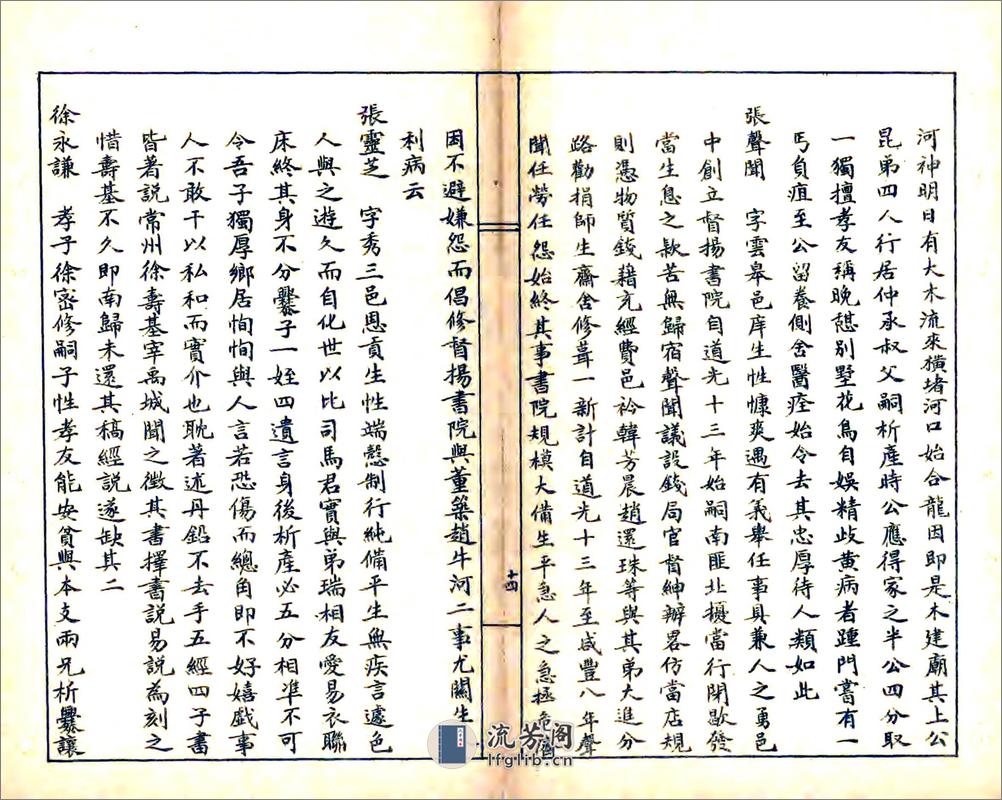 河神明日有大木流來横堵河口始合龍因即是木建廟其上公
昆弟四人行居仲承叔父嗣析産時公應得家之半公四分取
一獨擅孝友稱晚憇别墅花鳥自娛精岐黄病者踵門嘗有一
丐負疽至公留養側舍醫痊始令去其忠厚待人類如此
張聲聞 字雲皋邑庠生性慷爽遇有義舉任事具兼人之勇邑
中創立督揚書院自道光十三年始嗣南匪北擾當行閉歇發
當生息之欵苦無歸宿聲聞議設錢局官督紳辦畧仿當店規
則憑物質錢藉充經費邑衿韓芳晨趙還珠等與其弟大進分
路勸捐師生齋舍修葺一新計自道光十三年至咸豐八年聲
聞任勞任怨始終其事書院規模大備生平急人之急拯危
十四
因不避嫌怨而倡修督揚書院與董築趙牛河二事尤關生
利病云
張靈芝 字秀三邑恩貢生性端慤制行純備平生無疾言遽色
人與之遊久而自化世以比司馬君實與弟瑞相友愛易衣聯
床終其身不分爨子一姪四遺言身後析產必五分相準不可
令吾子獨厚鄉居恂恂與人言若恐傷而總角即不好嬉戲事
人不敢干以私和而實介也耽著述丹鉛不去手五經四子書
皆著説常州徐壽基宰禹城聞之徵其書擇書説易説為刻之
惜壽基不久即南歸未還其稿經説遂缺其二
徐永謙 孝子徐密修嗣子性孝友能安貧與本支兩兄析爨讓
流芳阁
lfglib.cn